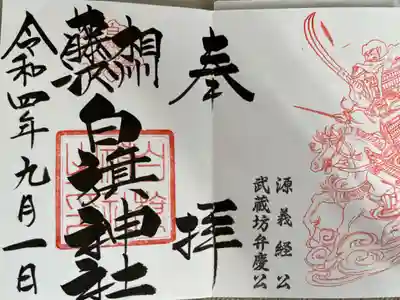 源義経公
武蔵坊弁慶公
奉拝
相州
藤沢
白旗神社
令和四年九月一日